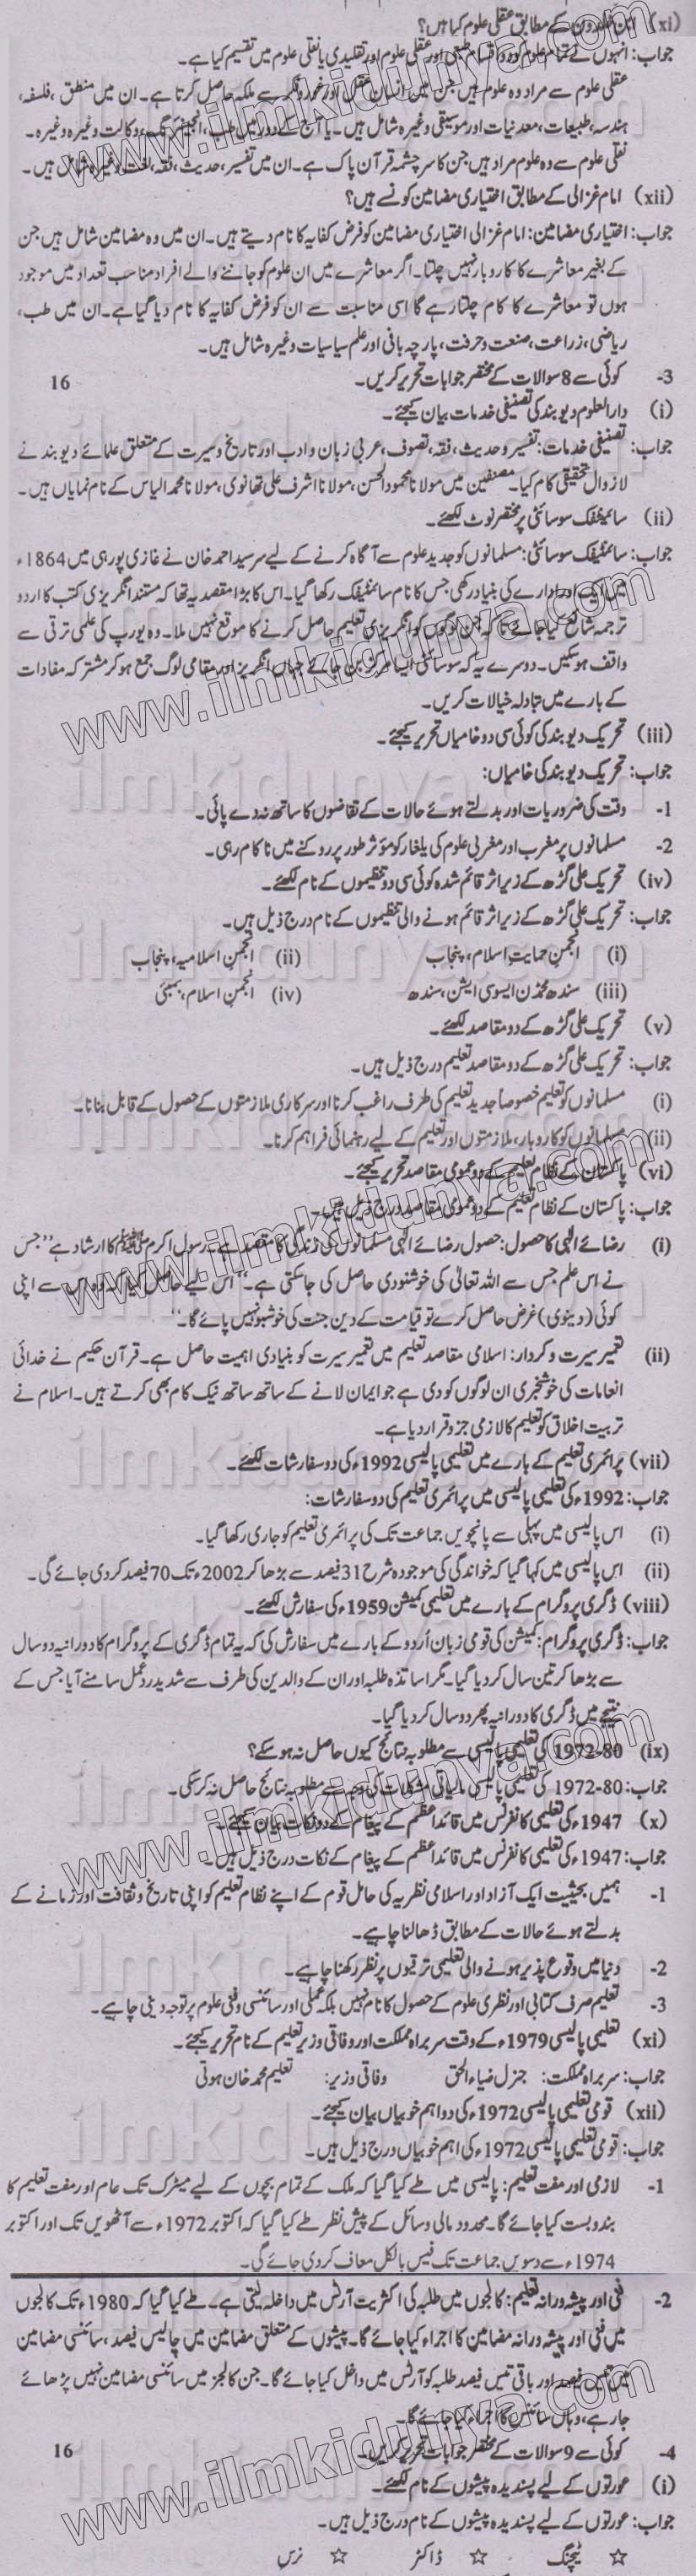 (xi) ابن خلدون کے مطابق عقلی علوم کیا ہیں؟
جواب: انہوں نے تمام علوم کو دو اقسام طبعی اور عقلی علوم اور تقلیدی یا نقلی علوم میں تقسیم کیا ہے۔
عقلی علوم سے مراد وہ علوم ہیں جن میں انسان عقل اور غور و فکر سے ملکہ حاصل کرتا ہے۔ ان میں منطق، فلسفہ،
ہندسہ، طبیعات، معدنیات اور موسیقی وغیرہ شامل ہیں۔ یا آج کے دور میں طب، انجینئرنگ، وکالت وغیرہ وغیرہ۔
نقلی علوم سے وہ علوم مراد ہیں جن کا سرچشمہ قرآن پاک ہے۔ ان میں تفسیر، حدیث، فقہ، لغت وغیرہ شامل ہیں۔
(xii) امام غزالی کے مطابق اختیاری مضامین کونسے ہیں؟
جواب: اختیاری مضامین: امام غزالی اختیاری مضامین کو فرض کفایہ کا نام دیتے ہیں۔ ان میں وہ مضامین شامل ہیں جن
کے بغیر معاشرے کا کاروبار نہیں چلتا۔ اگر معاشرے میں ان علوم کو جاننے والے افراد مناسب تعداد میں موجود
ہوں تو معاشرے کا کام چلتا رہے گا اسی مناسبت سے ان کو فرض کفایہ کا نام دیا گیا ہے۔ ان میں طب،
ریاضی، زراعت، صنعت و حرفت، پارچہ بانی اور علم سیاسیات وغیرہ شامل ہیں۔
3- کوئی سے 8 سوالات کے مختصر جوابات تحریر کریں۔ 16
(i) دارالعلوم دیوبند کی تصنیفی خدمات بیان کیجئے۔
جواب: تصنیفی خدمات: تفسیر و حدیث، فقہ، تصوف، عربی زبان و ادب اور تاریخ و سیرت کے متعلق علمائے دیوبند نے
لازوال تحقیقی کام کیا۔ مصنفین میں مولانا محمود الحسن، مولانا اشرف علی تھانوی، مولانا محمد الیاس کے نام نمایاں ہیں۔
(ii) سائنٹیفک سوسائٹی پر مختصر نوٹ لکھئے۔
جواب: سائنٹیفک سوسائٹی: مسلمانوں کو جدید علوم سے آگاہ کرنے کے لیے سرسید احمد خان نے غازی پور ہی میں 1864ء
میں ایک اور ادارے کی بنیاد رکھی جس کا نام سائنٹیفک رکھا گیا۔ اس کا بڑا مقصد یہ تھا کہ مستند انگریزی کتب کا اردو
ترجمہ شائع کیا جائے تاکہ جن لوگوں کو انگریزی تعلیم حاصل کرنے کا موقع نہیں ملا۔ وہ یورپ کی علمی ترقی سے
واقف ہو سکیں۔ دوسرے یہ کہ سوسائٹی ایسا مرکز بن جائے جہاں انگریز اور مقامی لوگ جمع ہو کر مشترکہ مفادات
کے بارے میں تبادلہ خیالات کریں۔
(iii) تحریک دیوبند کی کوئی سی دو خامیاں تحریر کیجئے۔
جواب: تحریک دیوبند کی خامیاں:
1- وقت کی ضروریات اور بدلتے ہوئے حالات کے تقاضوں کا ساتھ نہ دے پائی۔
2- مسلمانوں پر مغرب اور مغربی علوم کی یلغار کو مؤثر طور پر روکنے میں ناکام رہی۔
(iv) تحریک علی گڑھ کے زیر اثر قائم شدہ کوئی سی دو تنظیموں کے نام لکھئے۔
جواب: تحریک علی گڑھ کے زیر اثر قائم ہونے والی تنظیموں کے نام درج ذیل ہیں۔
(i) انجمن حمایت اسلام، پنجاب (ii) انجمن اسلامیہ، پنجاب
(iii) سندھ محمڈن ایسوسی ایشن، سندھ (iv) انجمن اسلام، بمبئی
(v) تحریک علی گڑھ کے دو مقاصد لکھئے۔
جواب: تحریک علی گڑھ کے دو مقاصد تعلیم درج ذیل ہیں۔
(i) مسلمانوں کو تعلیم خصوصاً جدید تعلیم کی طرف راغب کرنا اور سرکاری ملازمتوں کے حصول کے قابل بنانا۔
(ii) مسلمانوں کو کاروبار، ملازمتوں اور تعلیم کے لیے رہنمائی فراہم کرنا۔
(vi) پاکستان کے نظام تعلیم کے دو عمومی مقاصد تحریر کیجئے۔
جواب: پاکستان کے نظام تعلیم کے دو عمومی مقاصد درج ذیل ہیں۔
(i) رضائے الٰہی کا حصول: حصول رضائے الٰہی مسلمانوں کی زندگی کا مقصد ہے۔ رسول اکرم ﷺ کا ارشاد ہے "جس
نے اس علم جس سے اللہ تعالیٰ کی خوشنودی حاصل کی جا سکتی ہے۔" اس لیے حاصل کیا کہ وہ اس سے اپنی
کوئی (دنیوی) غرض حاصل کرے تو قیامت کے دن جنت کی خوشبو نہیں پائے گا۔"
(ii) تعمیر سیرت و کردار: اسلامی مقاصد تعلیم میں تعمیر سیرت کو بنیادی اہمیت حاصل ہے۔ قرآن حکیم نے خدائی
انعامات کی خوشخبری ان لوگوں کو دی ہے جو ایمان لانے کے ساتھ ساتھ نیک کام بھی کرتے ہیں۔ اسلام نے
تربیت اخلاق کو تعلیم کا لازمی جزو قرار دیا ہے۔
(vii) پرائمری تعلیم کے بارے میں تعلیمی پالیسی 1992ء کی دو سفارشات لکھئے۔
جواب: 1992ء کی تعلیمی پالیسی میں پرائمری تعلیم کی دو سفارشات:
(i) اس پالیسی میں پہلی سے پانچویں جماعت تک کی پرائمری تعلیم کو جاری رکھا گیا۔
(ii) اس پالیسی میں کہا گیا کہ خواندگی کی موجودہ شرح 31 فیصد سے بڑھا کر 2002ء تک 70 فیصد کر دی جائے گی۔
(viii) ڈگری پروگرام کے بارے میں تعلیمی کمیشن 1959ء کی سفارش لکھئے۔
جواب: ڈگری پروگرام: کمیشن کی قومی زبان اُردو کے بارے میں سفارش کی کہ یہ تمام ڈگری کے پروگرام کا دورانیہ دو سال
سے بڑھا کر تین سال کر دیا گیا۔ مگر اساتذہ طلبہ اور ان کے والدین کی طرف سے شدید ردعمل سامنے آیا جس کے
نتیجے میں ڈگری کا دورانیہ پھر دو سال کر دیا گیا۔
(ix) 1972-80 کی تعلیمی پالیسی سے مطلوبہ نتائج کیوں حاصل نہ ہو سکے؟
جواب: 1972-80 کی تعلیمی پالیسی مالیاتی مشکلات کی وجہ سے مطلوبہ نتائج حاصل نہ کر سکی۔
(x) 1947ء کی تعلیمی کانفرنس میں قائداعظم کے پیغام کے دو نکات بیان کیجئے۔
جواب: 1947ء کی تعلیمی کانفرنس میں قائداعظم کے پیغام کے نکات درج ذیل ہیں۔
1- ہمیں بحیثیت ایک آزاد اور اسلامی نظریہ کی حامل قوم کے اپنے نظام تعلیم کو اپنی تاریخ و ثقافت اور زمانے کے
بدلتے ہوئے حالات کے مطابق ڈھالنا چاہیے۔
2- دنیا میں وقوع پذیر ہونے والی تعلیمی ترقیوں پر نظر رکھنا چاہیے۔
3- تعلیم صرف کتابی اور نظری علوم کے حصول کا نام نہیں بلکہ عملی اور سائنسی و فنی علوم پر توجہ دینی چاہیے۔
(xi) تعلیمی پالیسی 1979ء کے وقت سربراہ مملکت اور وفاقی وزیر تعلیم کے نام تحریر کیجئے۔
جواب: سربراہ مملکت: جنرل ضیاء الحق وفاقی وزیر: تعلیم محمد خان ہوتی
(xii) قومی تعلیمی پالیسی 1972ء کی دو اہم خوبیاں بیان کیجئے۔
جواب: قومی تعلیمی پالیسی 1972ء کی اہم خوبیاں درج ذیل ہیں۔
1- لازمی اور مفت تعلیم: پالیسی میں طے کیا گیا کہ ملک کے تمام بچوں کے لیے میٹرک تک عام اور مفت تعلیم کا
بندوبست کیا جائے گا۔ محدود مالی وسائل کے پیش نظر طے کیا گیا کہ اکتوبر 1972ء سے آٹھویں تک اور اکتوبر
1974ء سے دسویں جماعت تک فیس بالکل معاف کر دی جائے گی۔
2- فنی اور پیشہ ورانہ تعلیم: کالجوں میں طلبہ کی اکثریت آرٹس میں داخلہ لیتی ہے۔ طے کیا گیا کہ 1980ء تک کالجوں
میں فنی اور پیشہ ورانہ مضامین کا اجراء کیا جائے گا۔ پیشوں کے متعلق مضامین میں چالیس فیصد، سائنسی مضامین
میں تیس فیصد اور باقی تیس فیصد طلبہ کو آرٹس میں داخل کیا جائے گا۔ جن کالجز میں سائنسی مضامین نہیں پڑھائے
جا رہے، وہاں سائنس کا اجراء کیا جائے گا۔
4- کوئی سے 9 سوالات کے مختصر جوابات تحریر کریں۔ 16
(i) عورتوں کے لیے پسندیدہ پیشوں کے نام لکھئے۔
جواب: عورتوں کے لیے پسندیدہ پیشوں کے نام درج ذیل ہیں۔
☆ ٹیچنگ ☆ ڈاکٹر ☆ نرس
www.ilmkidunya.com